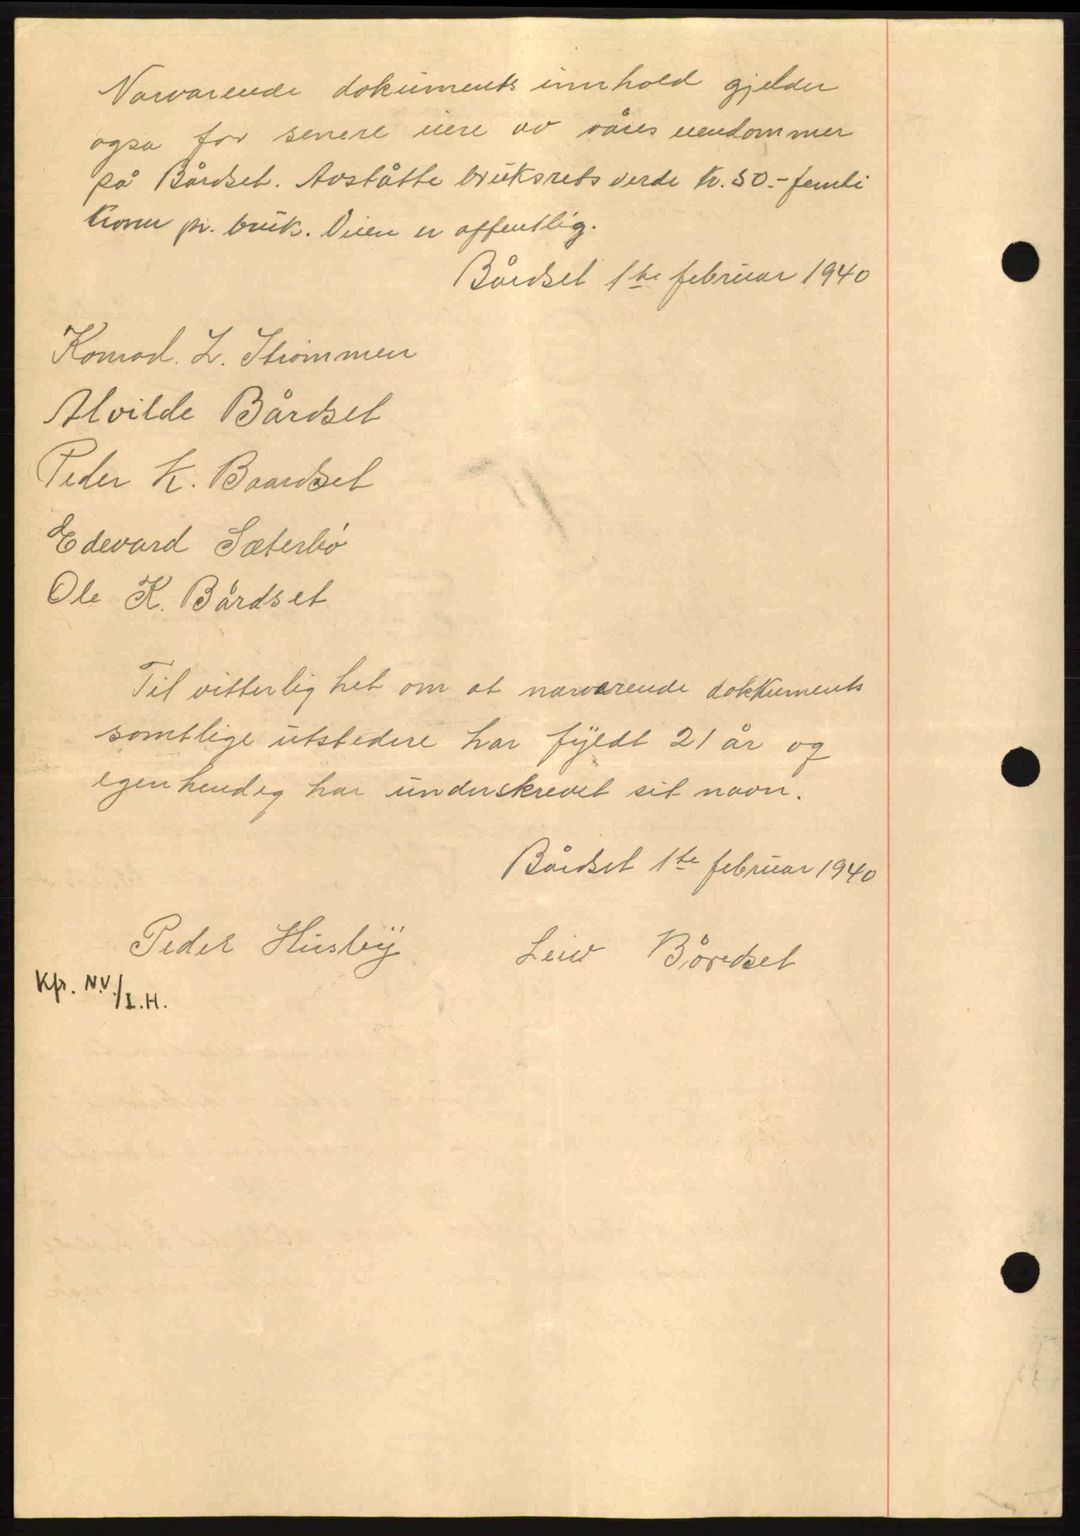 Narvarende dokuments innhold gjelder
ogsa for senere eiere av våres eiendommer
på Bårdset. Avståtte bruksrets verde kr. 50.- femti
kroner pr. bruk. Veien er offentlig.
Bårdset 1ste februar 1940
Konrad. L. Strømmen
Alvilde Bårdset
Peder K. Baardset
Edevard Sæterbø
Ole K. Bårdset
Til vitterlighet om at narvarende dokkuments
samtlige utstedere har fyldt 21 år og
egenhendig har underskrevet sit navn.
Bårdset 1ste februar 1940
Peder Husby Leiv Bårdset
Kfr. N.V./I.H.